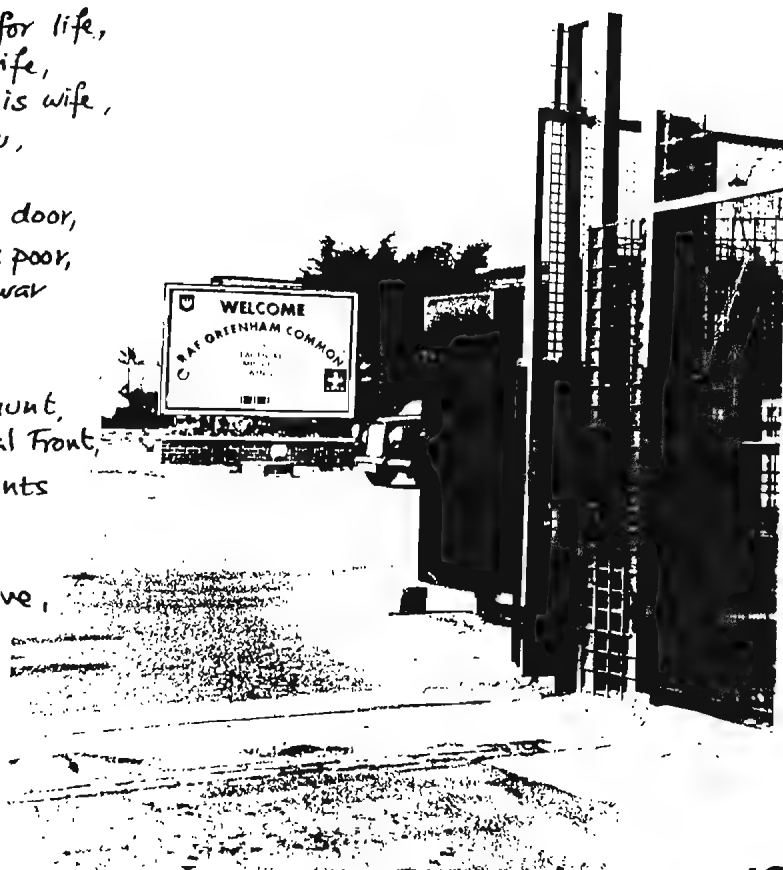 for life,
ife,
is wife,
door,
poor,
war
unt,
al Front,
nts
ve,
WELCOME
RAF GREENHAM COMMON